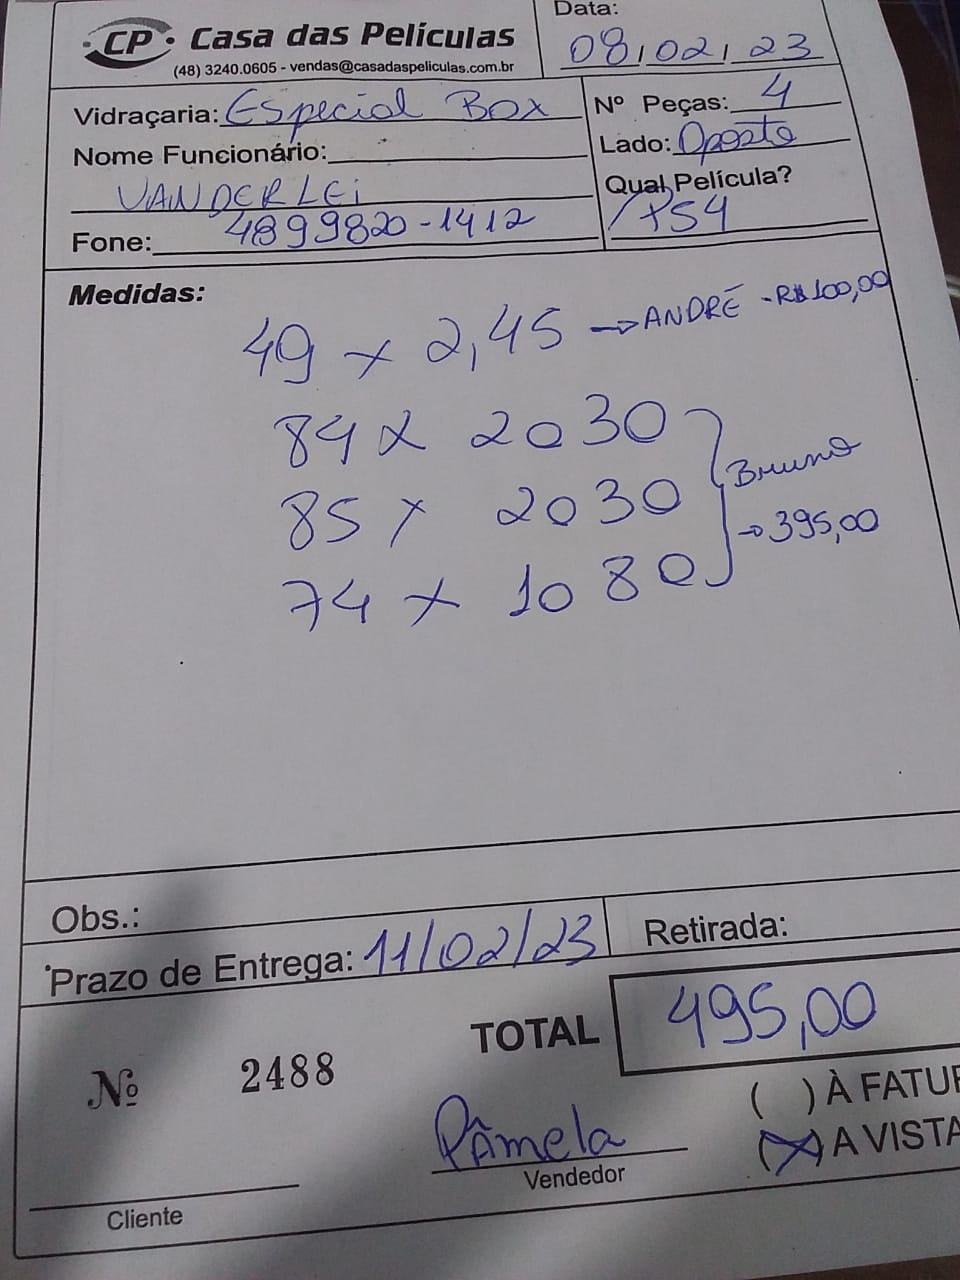 CP Casa das Películas
(48) 3240.0605 - vendas@casadaspeliculas.com.br
Data:
08,02,23
Vidraçaria: Especial Box
Nº Peças: 4
Nome Funcionário:
VANDERLEi
Lado: Oposto
Qual Película?
PS4
Fone: 4899820-1412
Medidas:
49 x 2,45 → ANDRÉ - R$100,00
84 x 2030
85 x 2030
74 x 1080
Bruno
→ 395,00
Obs.:
Prazo de Entrega: 11/02/23
Retirada:
TOTAL 495,00
Nº 2488
( ) À FATUR
(X) A VISTA
Pâmela
Vendedor
Cliente